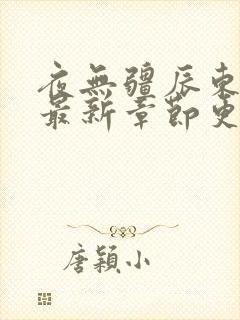 夜無疆辰東
最新章節更
唐穎小